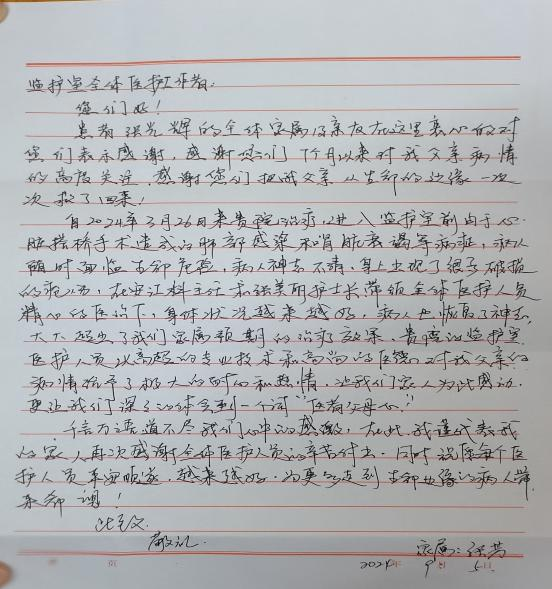 监护室全体医护工作者:
您们好!
患者张光辉的全体家属及亲友在这里衷心的对
您们表示感谢,感谢您们个月以来对我父亲病情
的高度关注,感谢您们把我父亲从死亡的边缘一次
次救了回来!
自2024年3月26日来贵院治疗,进入监护室前由于心
脏搭桥手术造成的肺部感染和肾脏衰竭等病症,病人
随时面临死亡危险,病人神志不清,身上出现了很多破损
的疮疡,在安江科主任和张美研护士长带领全体医护人员
精心的医治下,身体状况越来越好,病人也恢复了神志,
大大超出了我们家属预期的治疗效果,贵院的监护室
医护人员以高超的专业技术和高尚的医德对我父亲的
病情给予了极大的耐心和热情,让我们家人为此感动,
更让我们深深的体会到一个词“医者父母心”
千言万语道不尽我们心中的感激,在此,我谨代表我
的家人再次感谢全体医护人员的辛苦付出,同时祝愿每个医
护人员平安顺遂,越来越好,为更多走到死亡边缘的病人带
来希望!
此致
敬礼
家属:张芳
页
2024年9月5日